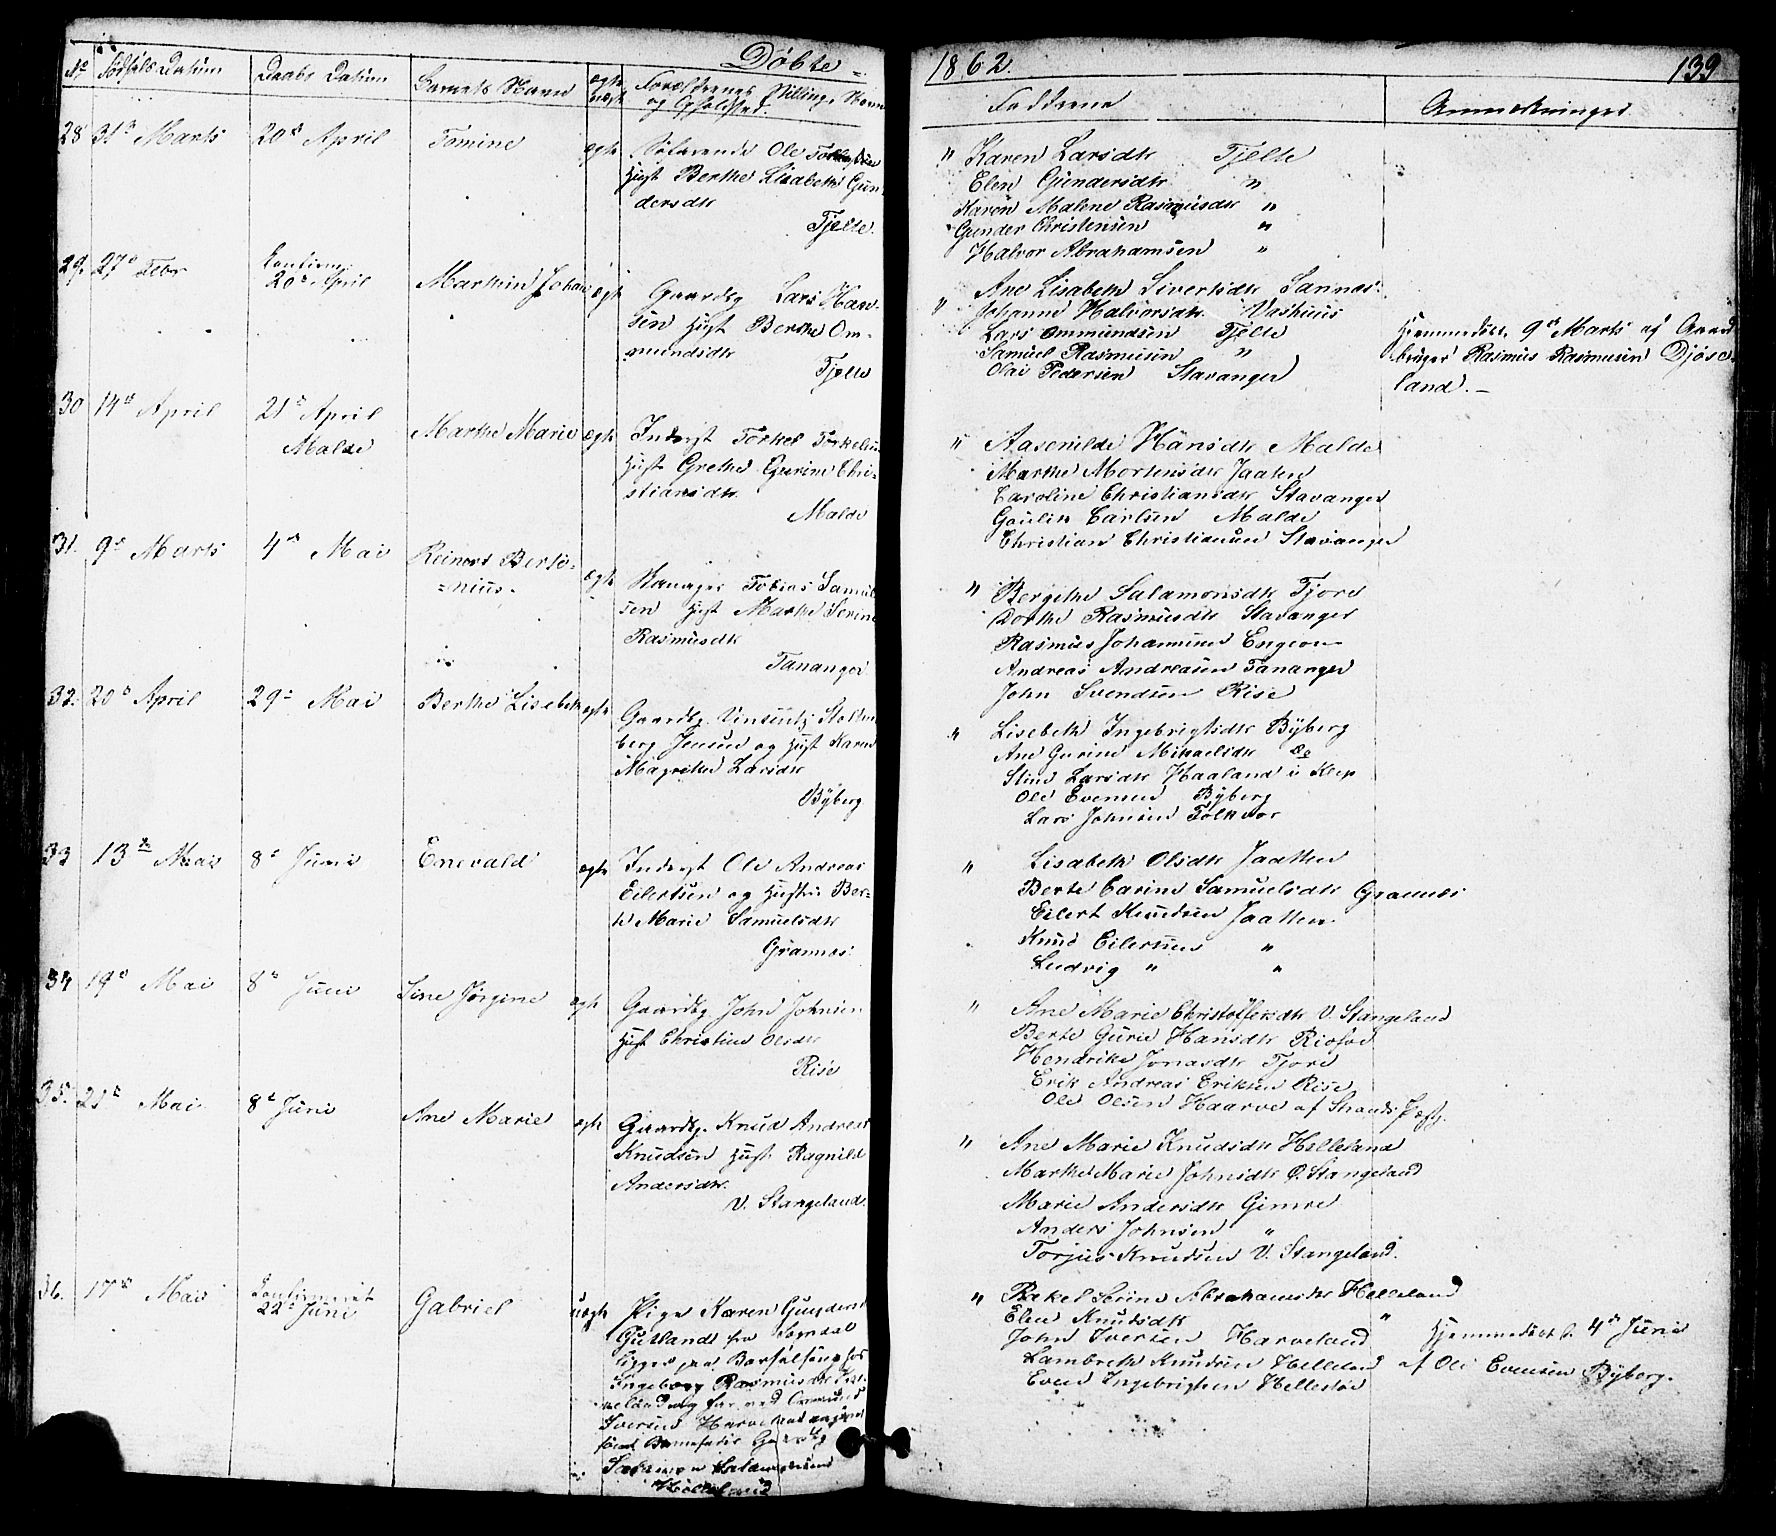 Döbte
1862.
139
No
Födsels Datum
Daabs Datum
Barnets Navn
ægte uægt
Forældrenes Stilling, Navn
og Opholdsted.
Fadderne
Anmærkninger
28 31te Marts 20de April Tomine ægte
Ole
hust Berthe Lisabeth Gun-
dersdtr
Tjelte.
" Karen Larsdtr Tjelte
Elen Gundersdtr "
Karen Malene Rasmusdtr "
Gunder Christensen "
Halvor Abrahamsen "
29. 27de Febr 20de April Marthin Johan ægte
Gaardbg Lars Han-
sen hust Berthe Om-
mundsdtr
Tjelte
Ane Lisabeth Sivertsdtr Sannæs
" Johanne Halvorsdtr Vashuus
Lars Ommundsen Tjelte
Samuel Rasmusen "
Olai Pedersen Stavanger
Hjemmedöbt 9de Marts af Gaard
bruger Rasmus Rasmusen Djöse-
land. –
30 14de April 21de April
Malde
Marthe Marie ægte
Inderst Torkel Torkelsen
hust Grethe Gurine Chri-
stiansdtr
Malde
" Aasenilde Hansdtr Malde
Marthe Mortensdtr Jaaten
Caroline Christiansdtr Stavanger
Carlsen Malde
Christian Christiansen Stavanger
31. 9de Marts 4de Mai Reinert Berto-
=nius. ægte
Tobias Samuel
sen hust Marthe Serine
Rasmusdtr
Tananger
" Bergithe Salamonsdtr Tjore
Dorthe Rasmusdtr Stavanger
Rasmus Johannesen
Andreas Andreasen Tananger
John Svendsen Rise
32. 20de April 29de Mai Berthe Lisebeth ægte
Gaardbg. Vinsents Stolten
berg Jensen og hust Karen
Magrethe Larsdtr
Byberg
" Lisebeth Ingebrigtsdtr Byberg
Ane Gurine Mikaelsdtr do
Stine Larsdtr Haaland i Klep
Ole Evensen Byberg
Lars Johnsen
33 13de Mai 8de Juni Enevald ægte
Inderst Ole Andreas
Eilertsen og hustru Ber-
te Marie Samuelsdtr
Grannæs.
" Lisabeth Olsdtr Jaatten
Berte Carine Samuelsdtr Grannæs
Eilert Knudsen Jaatten
Knud Eilertsen "
Ludvig " "
34 19de Mai 8de Juni Sine Jörgine ægte
Gaardbg John Johnsen
hust Christine Olsdtr
Risé
" Ane Marie Christoffersdtr V. Stangeland
Berte Gurie Hansdtr
Hendrike Jonasdtr Tjore
Erik Andreas Eriksen Rise
Ole Olsen Haarve af Strands Præstg.
35. 21de Mai 8de Juni Ane Marie ægte
Gaardbg. Knud Andreas
Knudsen hust Ragnild
Andersdtr.
V. Stangeland.
" Ane Marie Knudsdtr Helleland
Marthe Marie Johnsdtr Ö. Stangeland
Marie Andersdtr Gimre
Anders Johnsen "
Torjus Knudsen V. Stangeland.
36. 17de Mai Confirmeret
22de Juni Gabriel uægte
Pige Karen Gunders
fra Sogndal
ligger paa Barselseng hos
Ingeborg Rasmusdtr
Iversen
" Rakel Serine Abrahamsdtr Helleland
Elen Knudsdtr "
John Iversen Harveland
Lambreth Knudsen Helleland
Even Ingebrigtsen Hellestöe
Hjemmedöbt d. 4de Juni
af Ole Evensen Byberg.